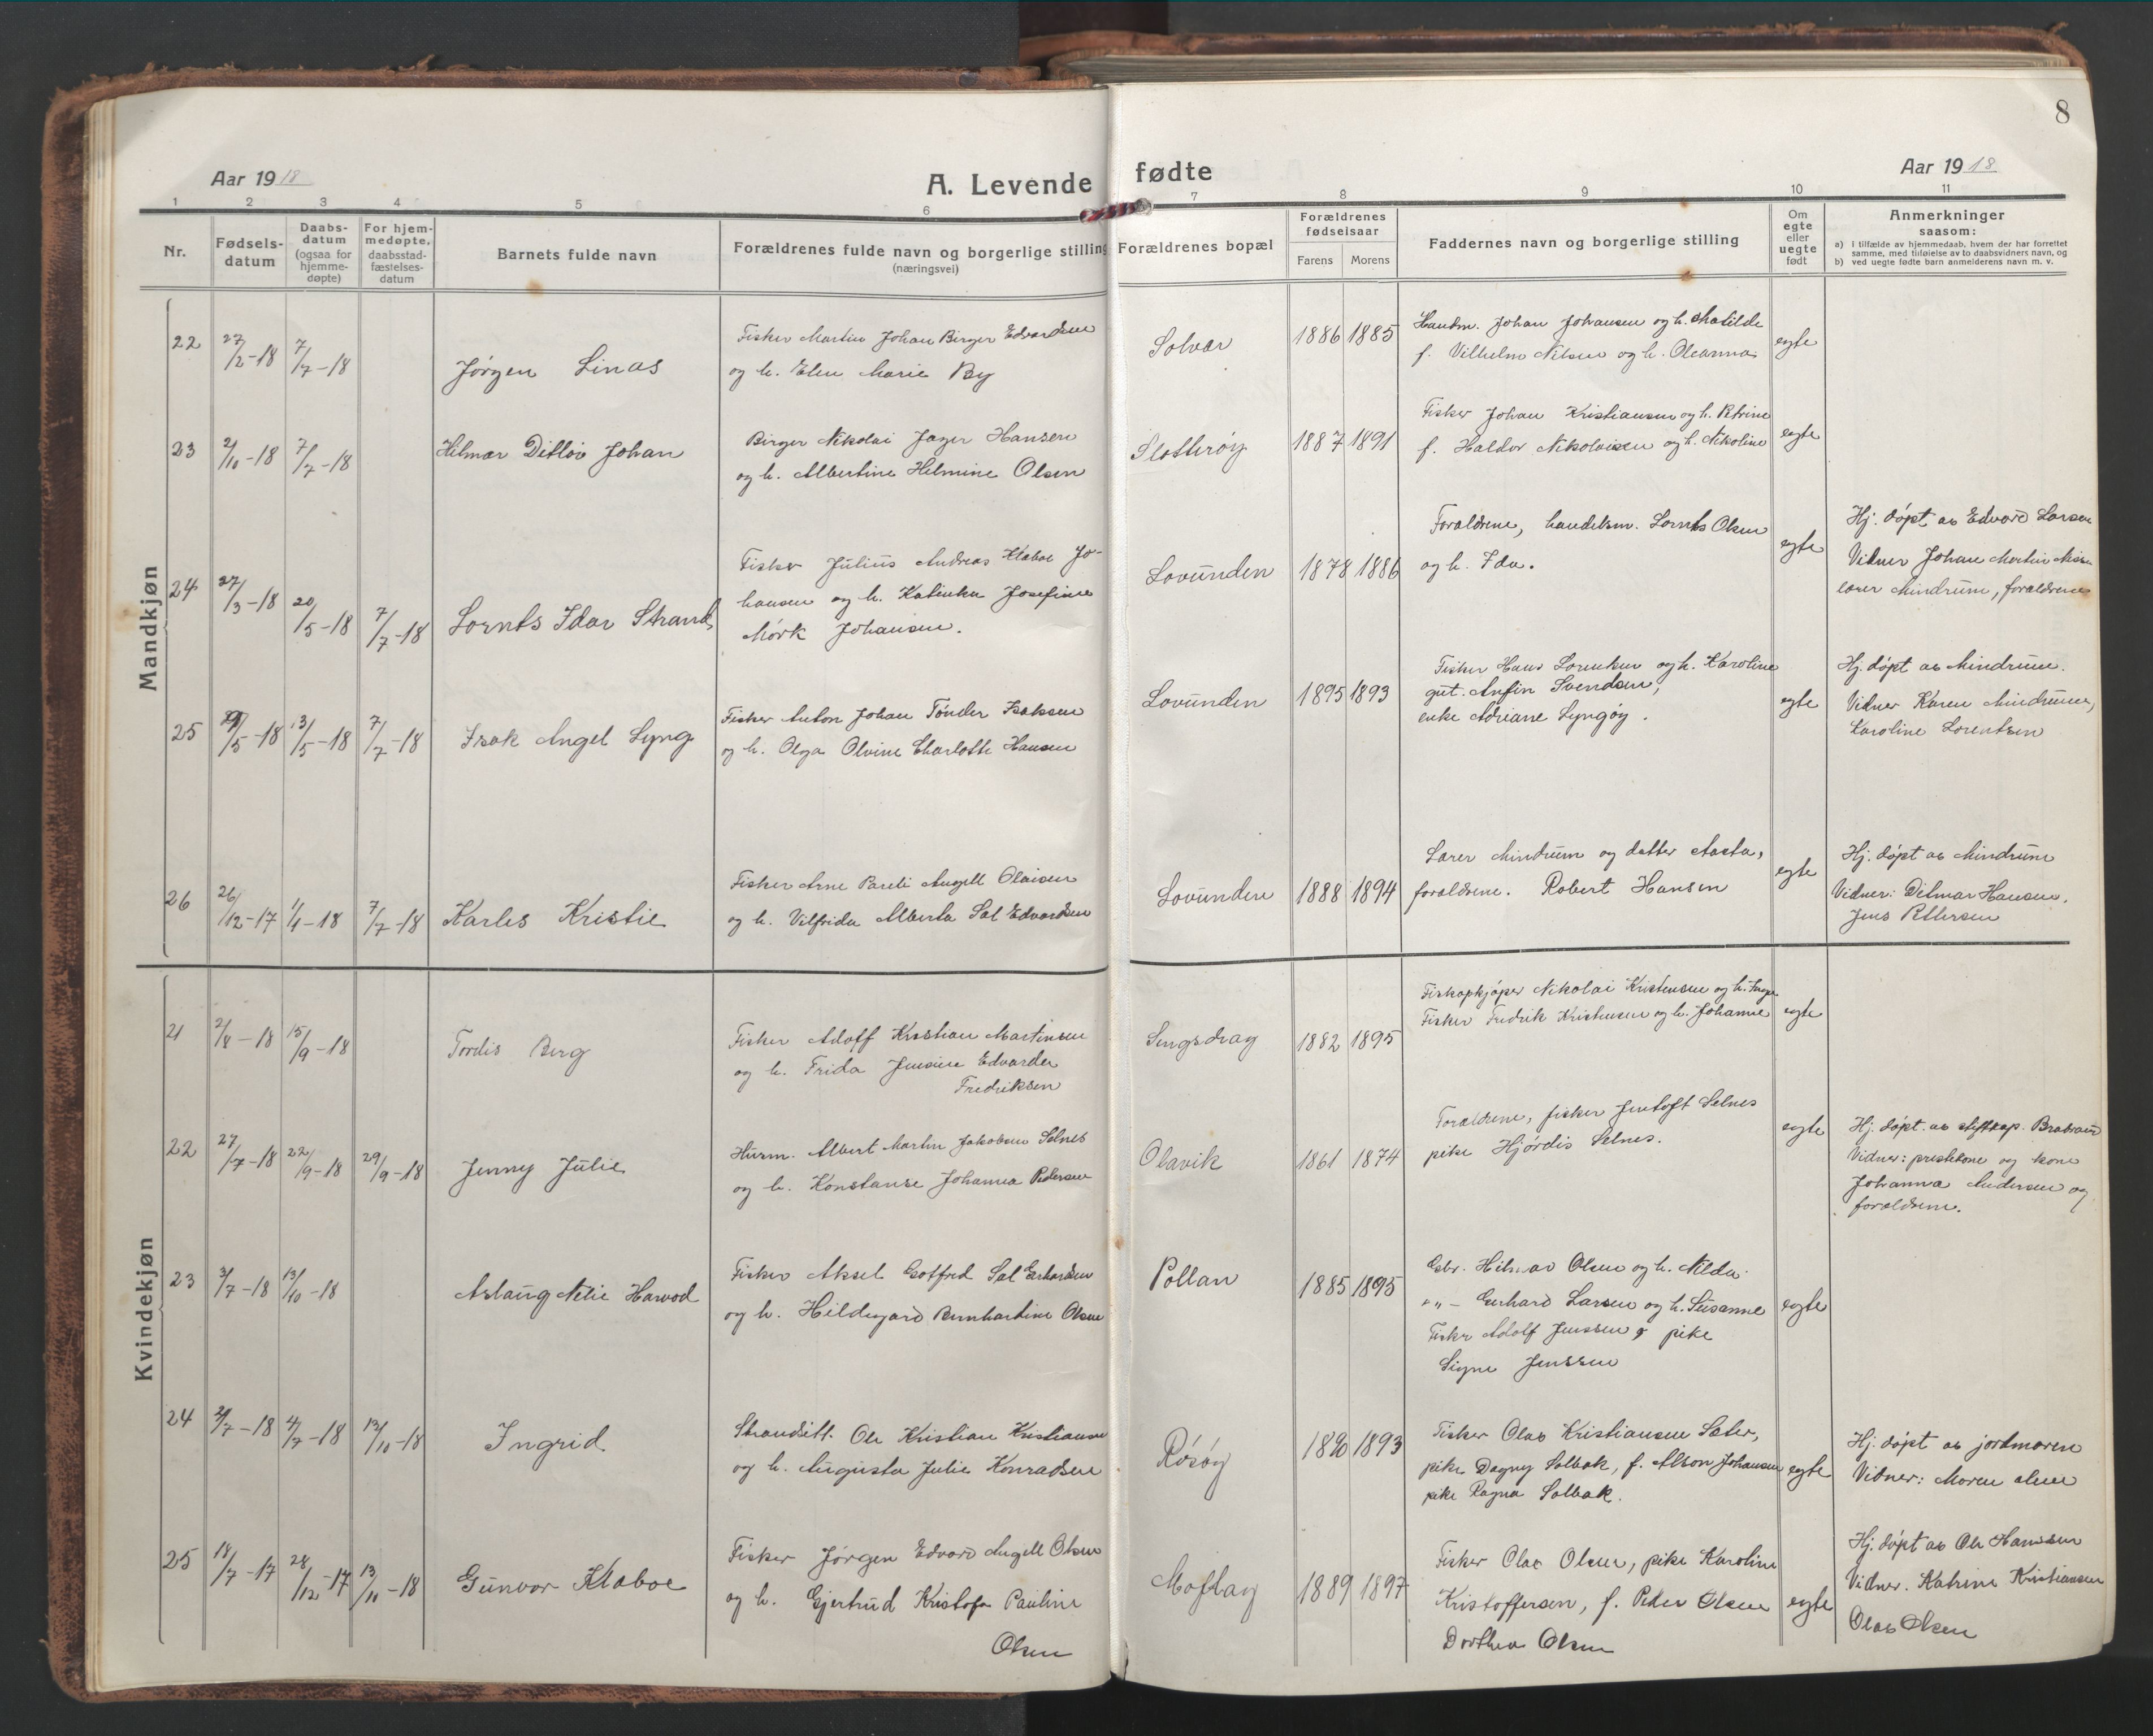 8
Aar 1918
A. Levende fødte
Aar 1918
1 2 3 4 5 6 7 8 9 10 11
Nr.
Fødsels-
datum
Daabs-
datum
(ogsaa for
hjemme-
døpte)
For hjem-
medøpte,
daabsstad-
fæstelses-
datum
Barnets fulde navn
Forældrenes fulde navn og borgerlige stilling
(næringsvei)
Forældrenes bopæl
Forældrenes
fødselsaar
Farens Morens
Faddernes navn og borgerlige stilling
Om
egte
eller
uegte
født
Anmerkninger
saasom:
a) i tilfælde av hjemmedaab, hvem der har forrettet
samme, med tilføielse av to daabsvidners navn, og
b) ved uegte fødte barn anmelderens navn m. v.
Mandkjøn
22 27/2-18 7/7-18
Jørgen Linas
Fisker Martin Johan Birger Edvardsen
og h. Elen Marie By
Solvær
1886 1885
Handm. Johan Johansen og h. Matilde
f. Vilhelm Nilsen og h. Oleanna
egte
23 2/10-18 7/7-18
Hilmar Ditlov Johan
Birger Nikolai Jager Hansen
og h. Albertine Helmine Olsen
Slotterøy
1887 1891
Fisker Johan Kristiansen og h. Petrine
f. Haldor Nikolaisen og h. Nikoline
egte
24 27/3-18 20/5-18 7/7-18
Lornts Idar Strand
Fisker Julius Andreas Klaboe Jo-
hansen og h. Katinka Josefine
Mörk Johansen.
Lovunden
1878 1886
Foraldrene, handelsm. Lornts Olsen
og h. Ida.
egte
Hj. döpt av Edvard Larsen
Vidner Johan Martin
lærer Mindrum, foraldrene
25 /5-18 13/5-18 7/7-18
Isak Angel Lyng
Fisker Anton Johan Tønder Isaksen
og h. Olga Olvine Charlotte Hansen
Lovunden
1895 1893
Fisker Hans Lorentsen og h. Karoline
gut. Anfin Svendsen,
enke Adriane Lyngøy.
egte
Hj. döpt av Mindrum.
Vidner Karen Mindrum,
Karoline Lorentsen
26 26/12-17 1/1-18 7/7-18
Karles Kristie
Fisker Arne Pareli Angell Olaisen
og h. Vilfrida Alberta Sal Edvardsen
Lovunden
1888 1894
Lærer Mindrum og datter Aasta,
foraldrene. Robert Hansen
egte
Hj. döpt av Mindrum
Vidner: Ditmar Hansen,
Jens Pettersen
Kvindekjøn
21 2/8-18 15/9-18
Tordis Berg
Fisker Adolf Kristian Martinsen
og h. Frida Jensine Edvarda
Fredriksen
Sengsdrag
1882 1895
Fiskopkjøper Nikolai Kristensen og h. Inga
Fisker Fredrik Kristensen og h. Johanne
egte
22 27/7-18 22/9-18 29/9-18
Jenny Julie
Hurm. Albert Martin Jakobsen Selnes
og h. Konstanse Johanna Pedersen
Olavik
1861 1874
Foraldrene, fisker Jentoft Selnes
pike Hjördis Selnes.
egte
Hj. döpt. av stiftskap. Brabrand
Vidner: prestekone og kone
Johanna Andersen og
foraldrene.
23 3/7-18 13/10-18
Aslaug Nelie Harvod
Fisker Aksel Gotfred Sal Gerhardsen
og h. Hildegard Bernhardine Olsen
Pollan
1885 1895
Gbr. Hilmar Olsen og h. Nilda.
" " - Gerhard Larsen og h. Susanne
Fisker Adolf Jenssen, pike
Signe Jenssen
egte
24 2/7-18 4/7-18 13/10-18
Ingrid
Strandsitt. Ole Kristian Kristiansen
og h. Augusta Julie Konradsen
Rösöy
1890 1893
Fisker Olav Kristiansen Sater,
pike Dagny Solbak, f. Alson Johansen
pike Ragna Solbak.
egte
Hj. döpt av jordmoren
Vidner: Moren alene
25 18/7-17 28/12-17 13/10-18
Gunvor Klaboe
Fisker Jörgen Edvard Angell Olsen
og h. Gjertrud Kristofa Pauline
Olsen
Moflag
1889 1897
Fisker Olav Olsen, pike Karoline
Kristoffersen, f. Peder Olsen
Dorthea Olsen
egte
Hj. döpt av Ole Hanssen
Vidner. Katrine Kristiansen
Olav Olsen